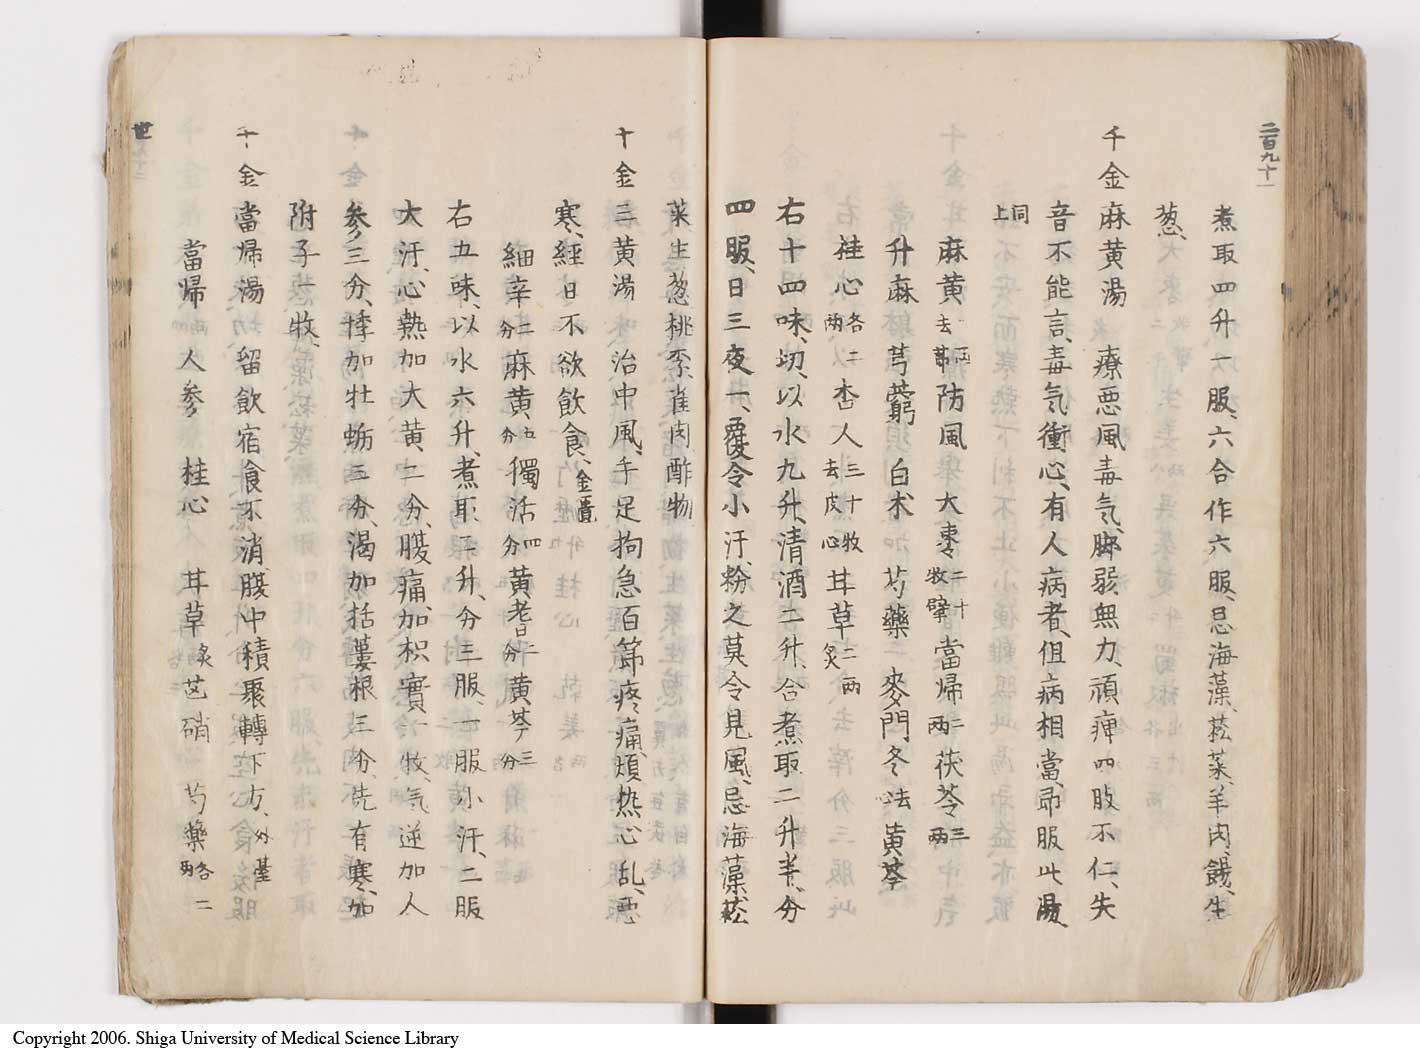 二百九十一
煮取四升一服六合作六服忌海藻菘菜羊肉餳生
葱
千金麻黄湯 療悪風毒気脚弱無力頑痺四肢不仁失
音不能言毒気衝心有人病者但病相當即服此湯
同上
麻黄一両去節防風 大棗二十牧擘當帰二両茯苓三両
升麻芎藭 白术 芍藥 麥門冬法黄芩
桂心各二両杏人三十牧去皮心甘草二両炙
右十四味切以水九升清酒二升合煮取二升半分
四服日三夜一覆令小汗粉之莫令見風忌海藻菘
菜生葱桃李雀肉酢物
千金三黄湯治中風手足拘急百節疼痛煩热心乱悪
寒經日不欲飲食金匱
細辛二分麻黄五分獨活四分黄耆二分黄芩三分
右五味以水六升煮取二升分三服一服小汗二服
大汗心熱加大黄二分腹痛加枳實一牧気逆加人
参三分悸加牡蛎三分渴加括蔞根三分先有寒加
附子一牧
千金當帰湯留飲宿食不消腹中積聚轉下方外臺
當帰人参 桂心 甘草炙芒硝 芍藥各二両